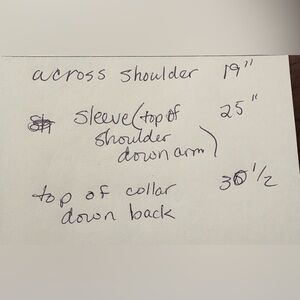 across shoulder 19"
sleeve (top of 25"
shoulder
down arm)
top of collar 30 1/2
down back